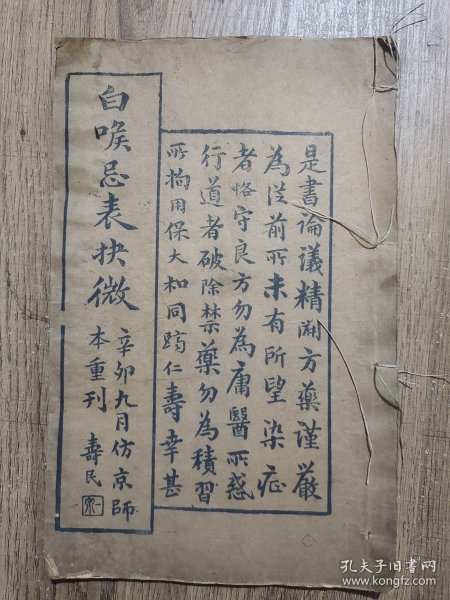 是書論議精開方藥谨嚴
為從前所未有所望染症
者恪守良方勿為庸醫所惑
行道者破除禁藥勿為積習
所拘用保大和同躋仁壽幸甚
白喉忌表抉微
辛卯九月仿京師
本重刊 壽民
孔夫子旧书网
www.kongfz.com